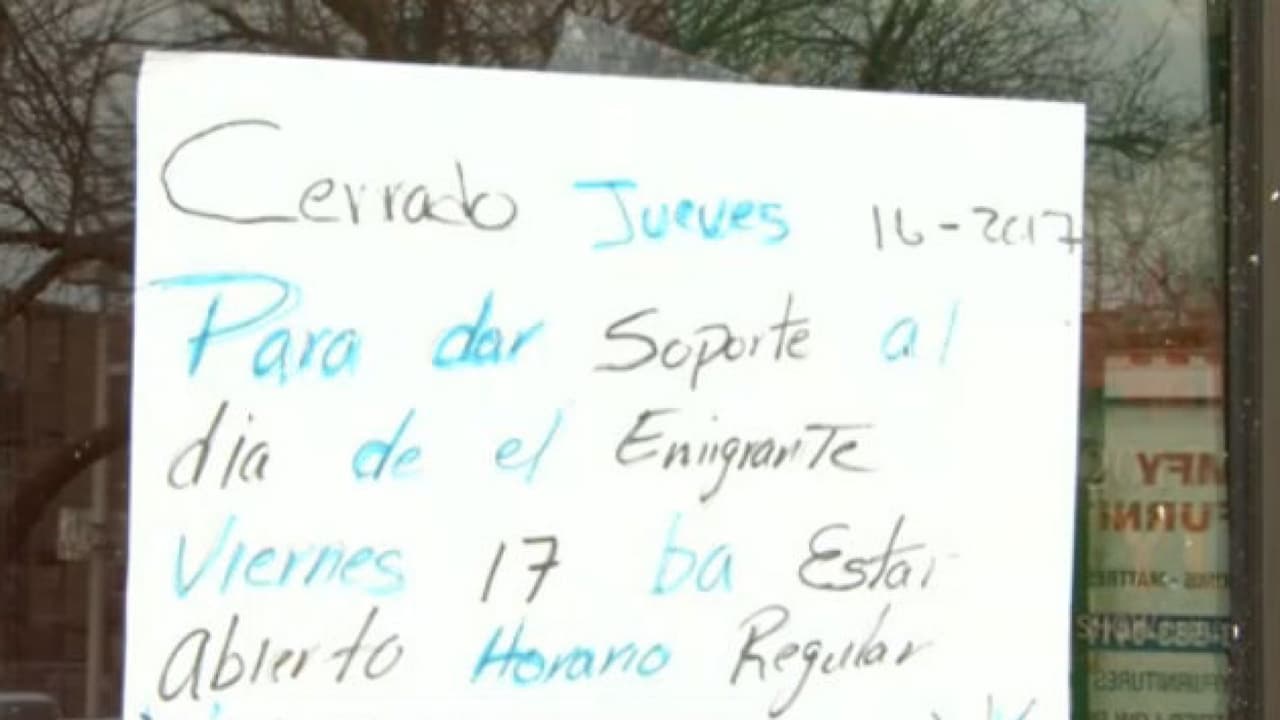 Cerrado Jueves 16-2017
Para dar Soporte al
dia de el Emigrante
Viernes 17 ba Estar
Abierto Horario Regular